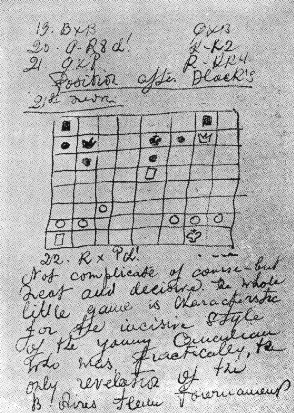 19. BxB QxB
20 - Q-R8 ch! K-K2
21 QxP R-KR4
Position after Black's
21st move
22. R x P ch!
Not complicate of course - but
neat and decisive. The whole
little game is characteristic
for the incisive style
of the young
who was practically, the
only revelation of the
B. Aires Team Tournament